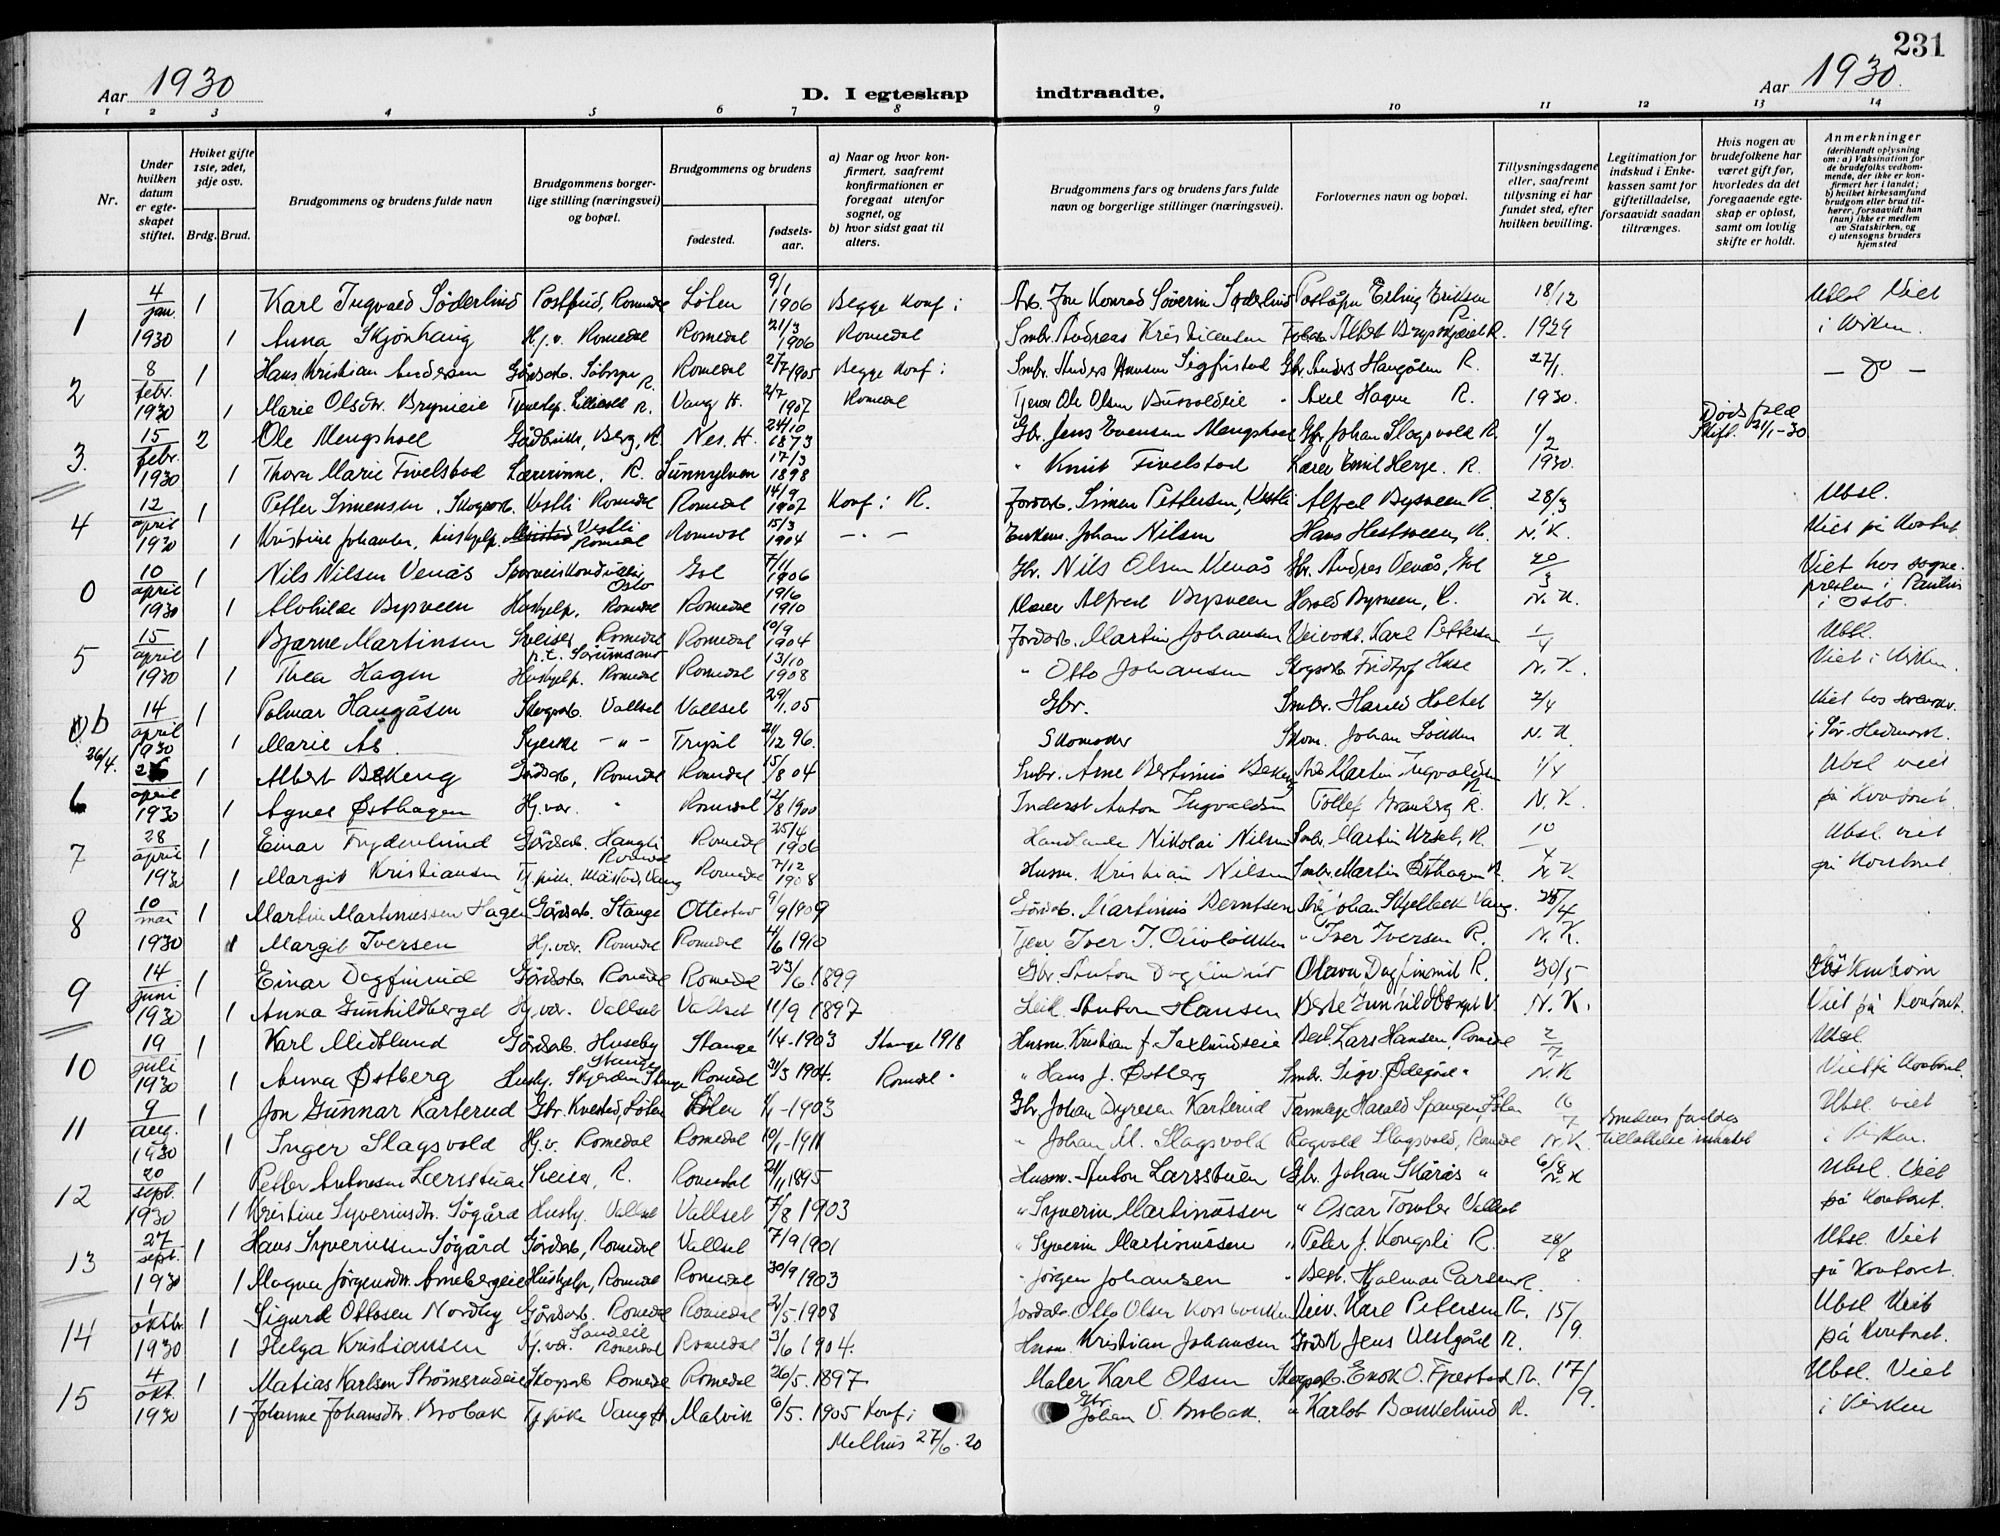 231
Aar 1930 D. I egteskap indtraadte. Aar 1930.
1 2 3 4 5 6 7 8 9 10 11 12 13 14
Nr.
Under hvilken datum er egteskapet stiftet.
Hviket gifte 1ste, 2det, 3dje osv.
Brdg. Brud.
Brudgommens og brudens fulde navn
Brudgommens borgerlige stilling (næringsvei) og bopæl.
Brudgommens og brudens
fødested. fødselsaar.
a) Naar og hvor konfirmert, saafremt konfirmationen er foregaat utenfor sognet, og
b) hvor sidst gaat til alters.
Brudgommens fars og brudens fars fulde navn og borgerlige stillinger (næringsvei).
Forlovernes navn og bopæl.
Tillysningsdagene eller, saafremt tillysning ei har fundet sted, efter hvilken bevilling.
Legitimation for indskud i Enkekassen samt for giftetilladelse, forsaavidt saadan tiltrænges.
Hvis nogen av brudefolkene har været gift før, hvorledes da det foregaaende egteskap er opløst, samt om lovlig skifte er holdt.
Anmerkninger (deriblandt oplysning om: a) Vaksination for de brudefolks vedkommende, der ikke er konfirmert her i landet; b) hvilket kirkesamfund brudgom eller brud tilhører, forsaavidt han (hun) ikke er medlem av Statskirken, og c) utensogns bruders hjemsted
1 4 jan. 1930 1 Karl Ingvald Søderlind Postbud, Romedal Løten 9/1 1906 Begge konf i Arb. Jon Konrad Søverin Søderlind Poståpn Erling Eriksen 18/12 Utbl Viet
1 Anna Skjønhaug H.j.v. Romedal Romedal 21/3 1906 Romedal Smbr. Andreas Kristiansen R. 1929 i kirken.
2 8 febr. 1930 1 Hans Kristian Andersen Gårdsarb. R. Romedal 27/7 1905 Begge konf i Smbr. Anders Hansen Sigfustad Gbr. Anders Haugåsen R. 27/1. - do -
1 Marie Olsdtr. Brynieie R. Vang H. 2/7 1907 Romedal Tjener Ole Olsen " Axel Hagen R. 1930.
3. 15 febr. 1930 2 Ole Mengshoel Gårdbruk., Berg, R. Nes. H. 24/10 1873 Gbr. Jens Evensen Mengshoel Gbr. Johan Slagsvold R. 1/2 Dødsfald Skift. 21/1-30
1 Thora Marie Fivelstad Lærerinne, R. Sunnylven 17/3 1898 " Knut Fivelstad Lærer Emil Herge. R. 1930.
4 12 april 1930 1 Petter Simensen, Skogsarb. Vestli Romedal Romedal 14/9 1907 Konf i R. Jordarb. Simen Pettersen, Vestli Alfred Bysveen R. 28/3 Utbl.
1 Kristine Johansen, hushjelp. Vestli Romedal Romedal 15/3 1904 - " - Enkem. Johan Nilsen Hans Hestsveen, R. N. K. Viet på Kontoret
0 10 april 1930 1 Nils Nilsen Venås Sporveiskonduktør, Oslo Gol 7/11 1906 Gbr. Nils Olsen Venås Gbr. Andres Venås, Gol 20/3 Viet hos sogne-
1 Alvhilde Bysveen Hushjelp, Romedal Romedal 19/6 1910 Alfred Bysveen Harald Bysveen, R. N. K. presten i Paulus i Oslo.
5 15 april 1930 1 Bjarne Martinsen Sveiser Romedal p.t. Sørumsand Romedal 10/9 1904 Jordarb. Martin Johansen Veivokt. Karl Pettersen 1/4 Utbl.
1 Thea Hagen Hushjelp. Romedal Romedal 13/10 1908 " Otto Johansen Skogsarb. Fridtjof Huse N. K. Viet i Kirken.
0b 14 april 1930 1 Palmar Haugåsen Skogsarb. Vallset Vallset 29/1.05 Gbr. Smbr. Harald Holtet 2/4 Viet hos sorenskr.
1 Marie As Syerske - " - Trysil 21/12 96. Skomaker Skom. Johan N. K. i Sør-Hedmark.
6 26/4. 26 april 1930 1 Albert Bekeng Gårdsarb., Romedal Romedal 15/8 04 Smbr. Arne Bertinius Bekeng Arb. Martin Ingvaldsen R. 1/4 Utbl viet
1 Agnes Østhagen Hj.vær. " Romedal 12/8 1900 Inderst Anton Ingvaldsen Tollef Granberg R. N. K. på Kontoret.
7 28 april 1930 1 Einar Frydenlund Gårdsarb. Haugli Romedal Romedal 25/4 1906 Handlende Nikolai Nilsen Smbr. Martin Urset, R. 10/4 Utbl. viet
1 Margit Kristiansen Tj.pike. Måstad, Vang Romedal 7/12 1908 Husm. Kristian Nilsen Smbr. Martin Østhagen R. N. K. på Kontoret.
8 10 mai 1930 1 Martin Martinussen Hagen Gårdsarb. Stange Ottestad 9/9 1909 Gårdsarb. Martinus Berntsen Arb. Johan Skjelbek Vang. 25/4
1 Margit Iversen Hj.vær. Romedal Romedal 4/6 1910 Tjener Iver J. " Iver Iversen R. N. K.
9 14 juni 1930 1 Einar Dagfinrud Gårdsarb. Romedal Romedal 23/6 1899 Gbr. Anton Dagfinrud Olava Dagfinrud R. 30/5
1 Anna Gunhildberget Hj.vær. Vallset Vallset 11/9 1897 Leil. Anton Hansen Berte Gunhildberget V. N. K. Viet på Kontoret.
10 19 juli 1930 1 Karl Midtlund Gårdsarb. Huseby Stange Stange 1/4-1903 Stange 1918 Husm. Kristian f. Saxlundseie Best. Lars Hansen, Romedal 2/7 Utbl.
1 Anna Østberg Hushj. Skjerden Stange Romedal 31/3 1904. Romedal " " Hans J. Østberg Smbr. Sigv. Ødegård " N. K Viet på Kontoret.
11 9 aug. 1930 1 Jon Gunnar Karterud Gbr. Kvestad, Løten Løten 1/1-1903 Gbr. Johan Dyresen Karterud Tannlæge Harald Spangen, Løten 16/7 Brudens farfars Utbl. viet
1 Inger Slagsvold Hj.v. Romedal Romedal 10/1-1911 " Johan M. Slagsvold Ragvald Slagsvold, Romedal N. K. tillatelse innhentet i kirken.
12 20 sept. 1930 1 Petter Antonsen Larsstuen Sveiser, R. Romedal 21/11 1895 Husm. Anton Larsstuen Gbr. Johan Skårås " 6/8 N. K Utbl. Viet
1 Kristine Syverinsdtr. Søgård Hushj. Vallset Vallset 7/8 1903 " Syverin Martinussen " Oscar Tomter Vallset på Kontoret.
13 27 sept. 1930 1 Hans Syverinsen Søgård Gårdsarb., Romedal Vallset 7/9 1901 " Syverin Martinussen " Peter J. Kongsli R. 28/8 Utbl. Viet
1 Magna Jørgensdtr. Arnebergeie Hushjelp, Romedal Romedal 30/9 1903 " Jørgen Johansen " Best. Hjalmar Carsen R. på Kontoret.
14 1 oktbr. 1930 1 Sigurd Ottosen Nordby Gårdsarb. Romedal Romedal 21/5-1908 Jordarb. Otto Olsen Veiv. Karl Petersen R. 15/9. Utbl Viet
1 Helga Kristiansen Hj.vær. Sandeie Romedal Romedal 3/6 1904. Husm. Kristian Johansen Jens Vestgård R. på Kontoret.
15 4 okt. 1930 1 Matias Karlsen Strømsrudeie Skogsarb Romedal Romedal 26/5. 1897 Maler Karl Olsen Skogsarb. Enok O. Fjæstad R. 17/9. Utbl. Viet
1 Johanne Johansdtr. Brobak Tj.pike Vang H Malvik 6/5. 1905 Konf i Gbr. Johan O. Brobak. " Karlot Bankelund R. i Kirken
Melhus 27/6.20